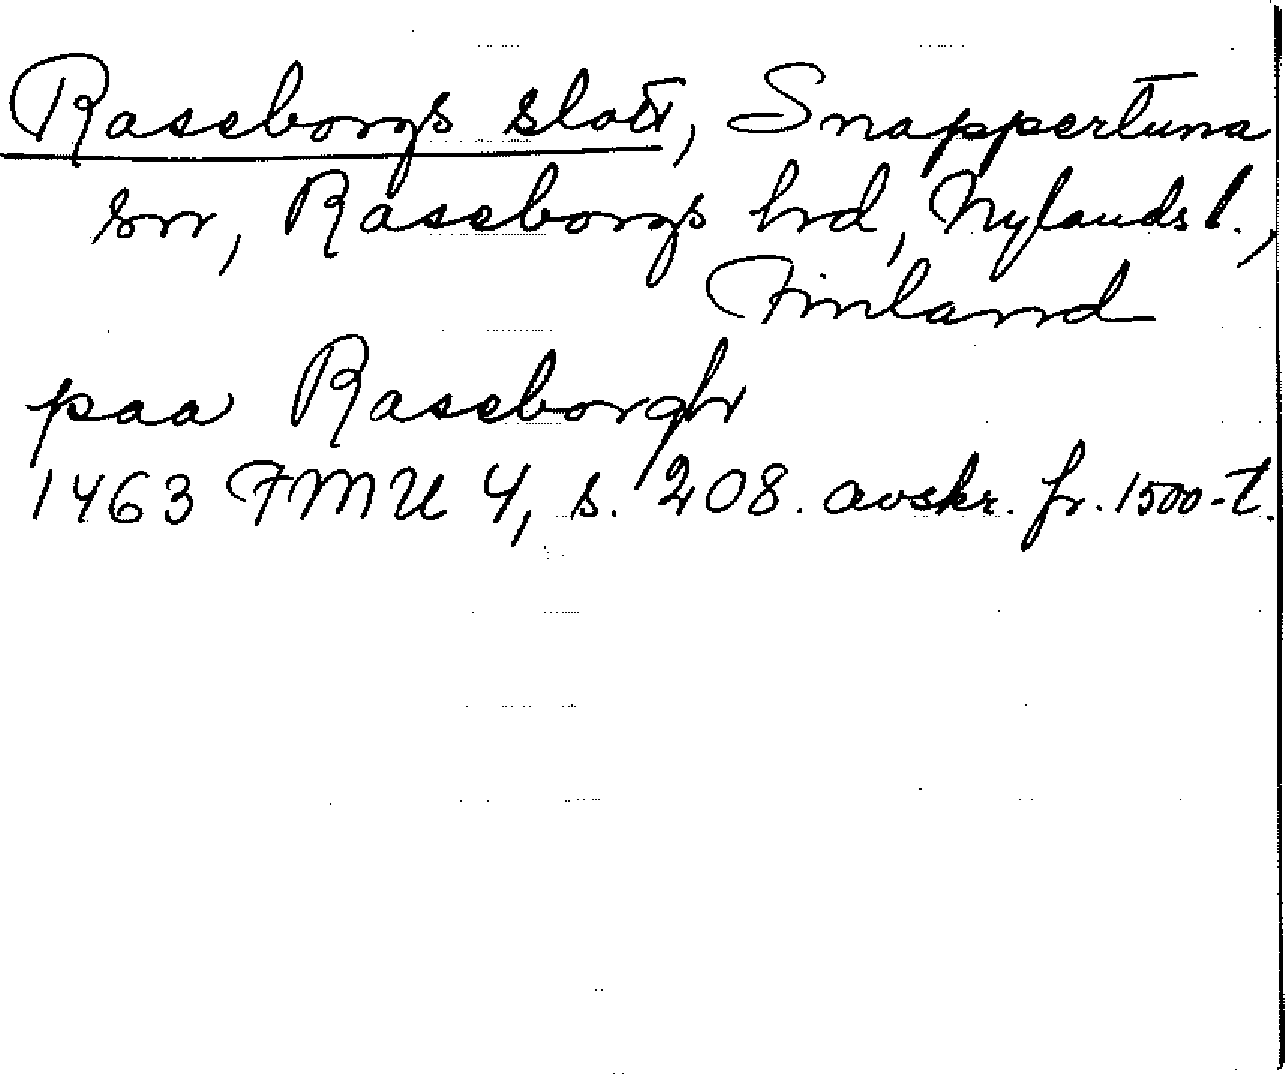 Raseborgs slott, Snappertuna
sn, Raseborgs hrd, Nylands l.,
Finland
paa Raseborgh
1463 FMU 4, s. 208. avskr. fr. 1500-t.